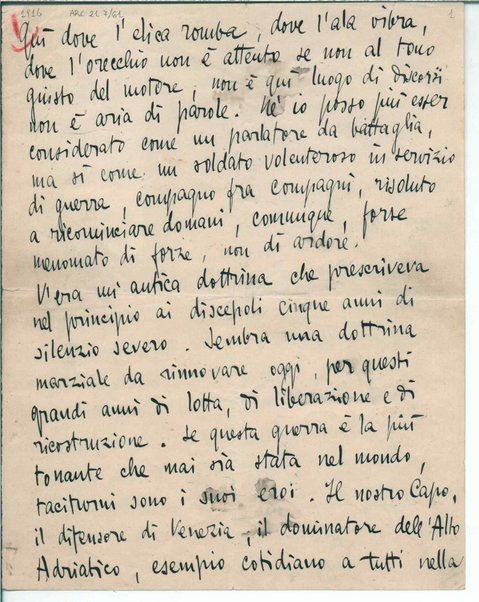 1916 ARC 21.7/61 1
Qui dove l'elica romba, dove l'ala vibra,
dove l'orecchio non è attento se non al tono
giusto del motore, non è qui luogo di discorsi
non è aria di parole. Né io posso più esser
considerato come un parlatore da battaglia,
ma sì come un soldato volenteroso in servizio
di guerra, compagno fra compagni, risoluto
a ricominciare domani, comunque, forse
menomato di forze, non di ardore.
V'era un'antica dottrina che prescriveva
nel principio ai discepoli cinque anni di
silenzio severo. Sembra una dottrina
marziale da rinnovare oggi, per questi
grandi anni di lotta, di liberazione e di
ricostruzione. Se questa guerra è la più
tonante che mai sia stata nel mondo,
taciturni sono i suoi eroi. Il nostro Capo,
il difensore di Venezia, il dominatore dell'Alto
Adriatico, esempio cotidiano a tutti nella